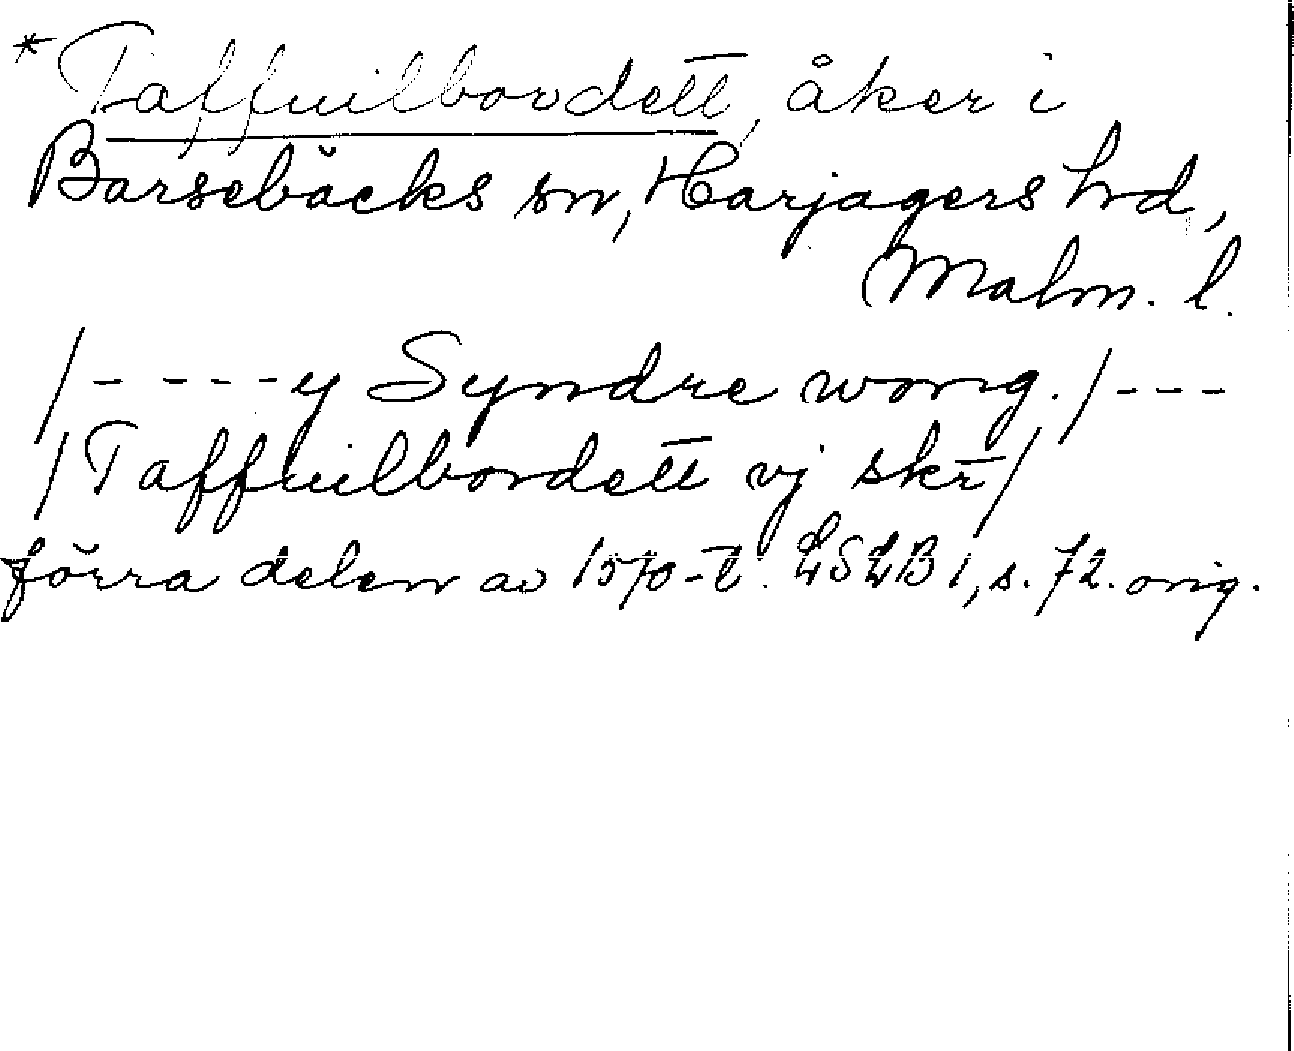 *Taffuilbordett, åker i
Barsebäcks sn, Harjagers hd,
Malm. l.
/- - - - y Syndre wong. /- - -
/Taffuilbordett vj skr/
förra delen av 1570-t. LSLB 1, s. 72. orig.